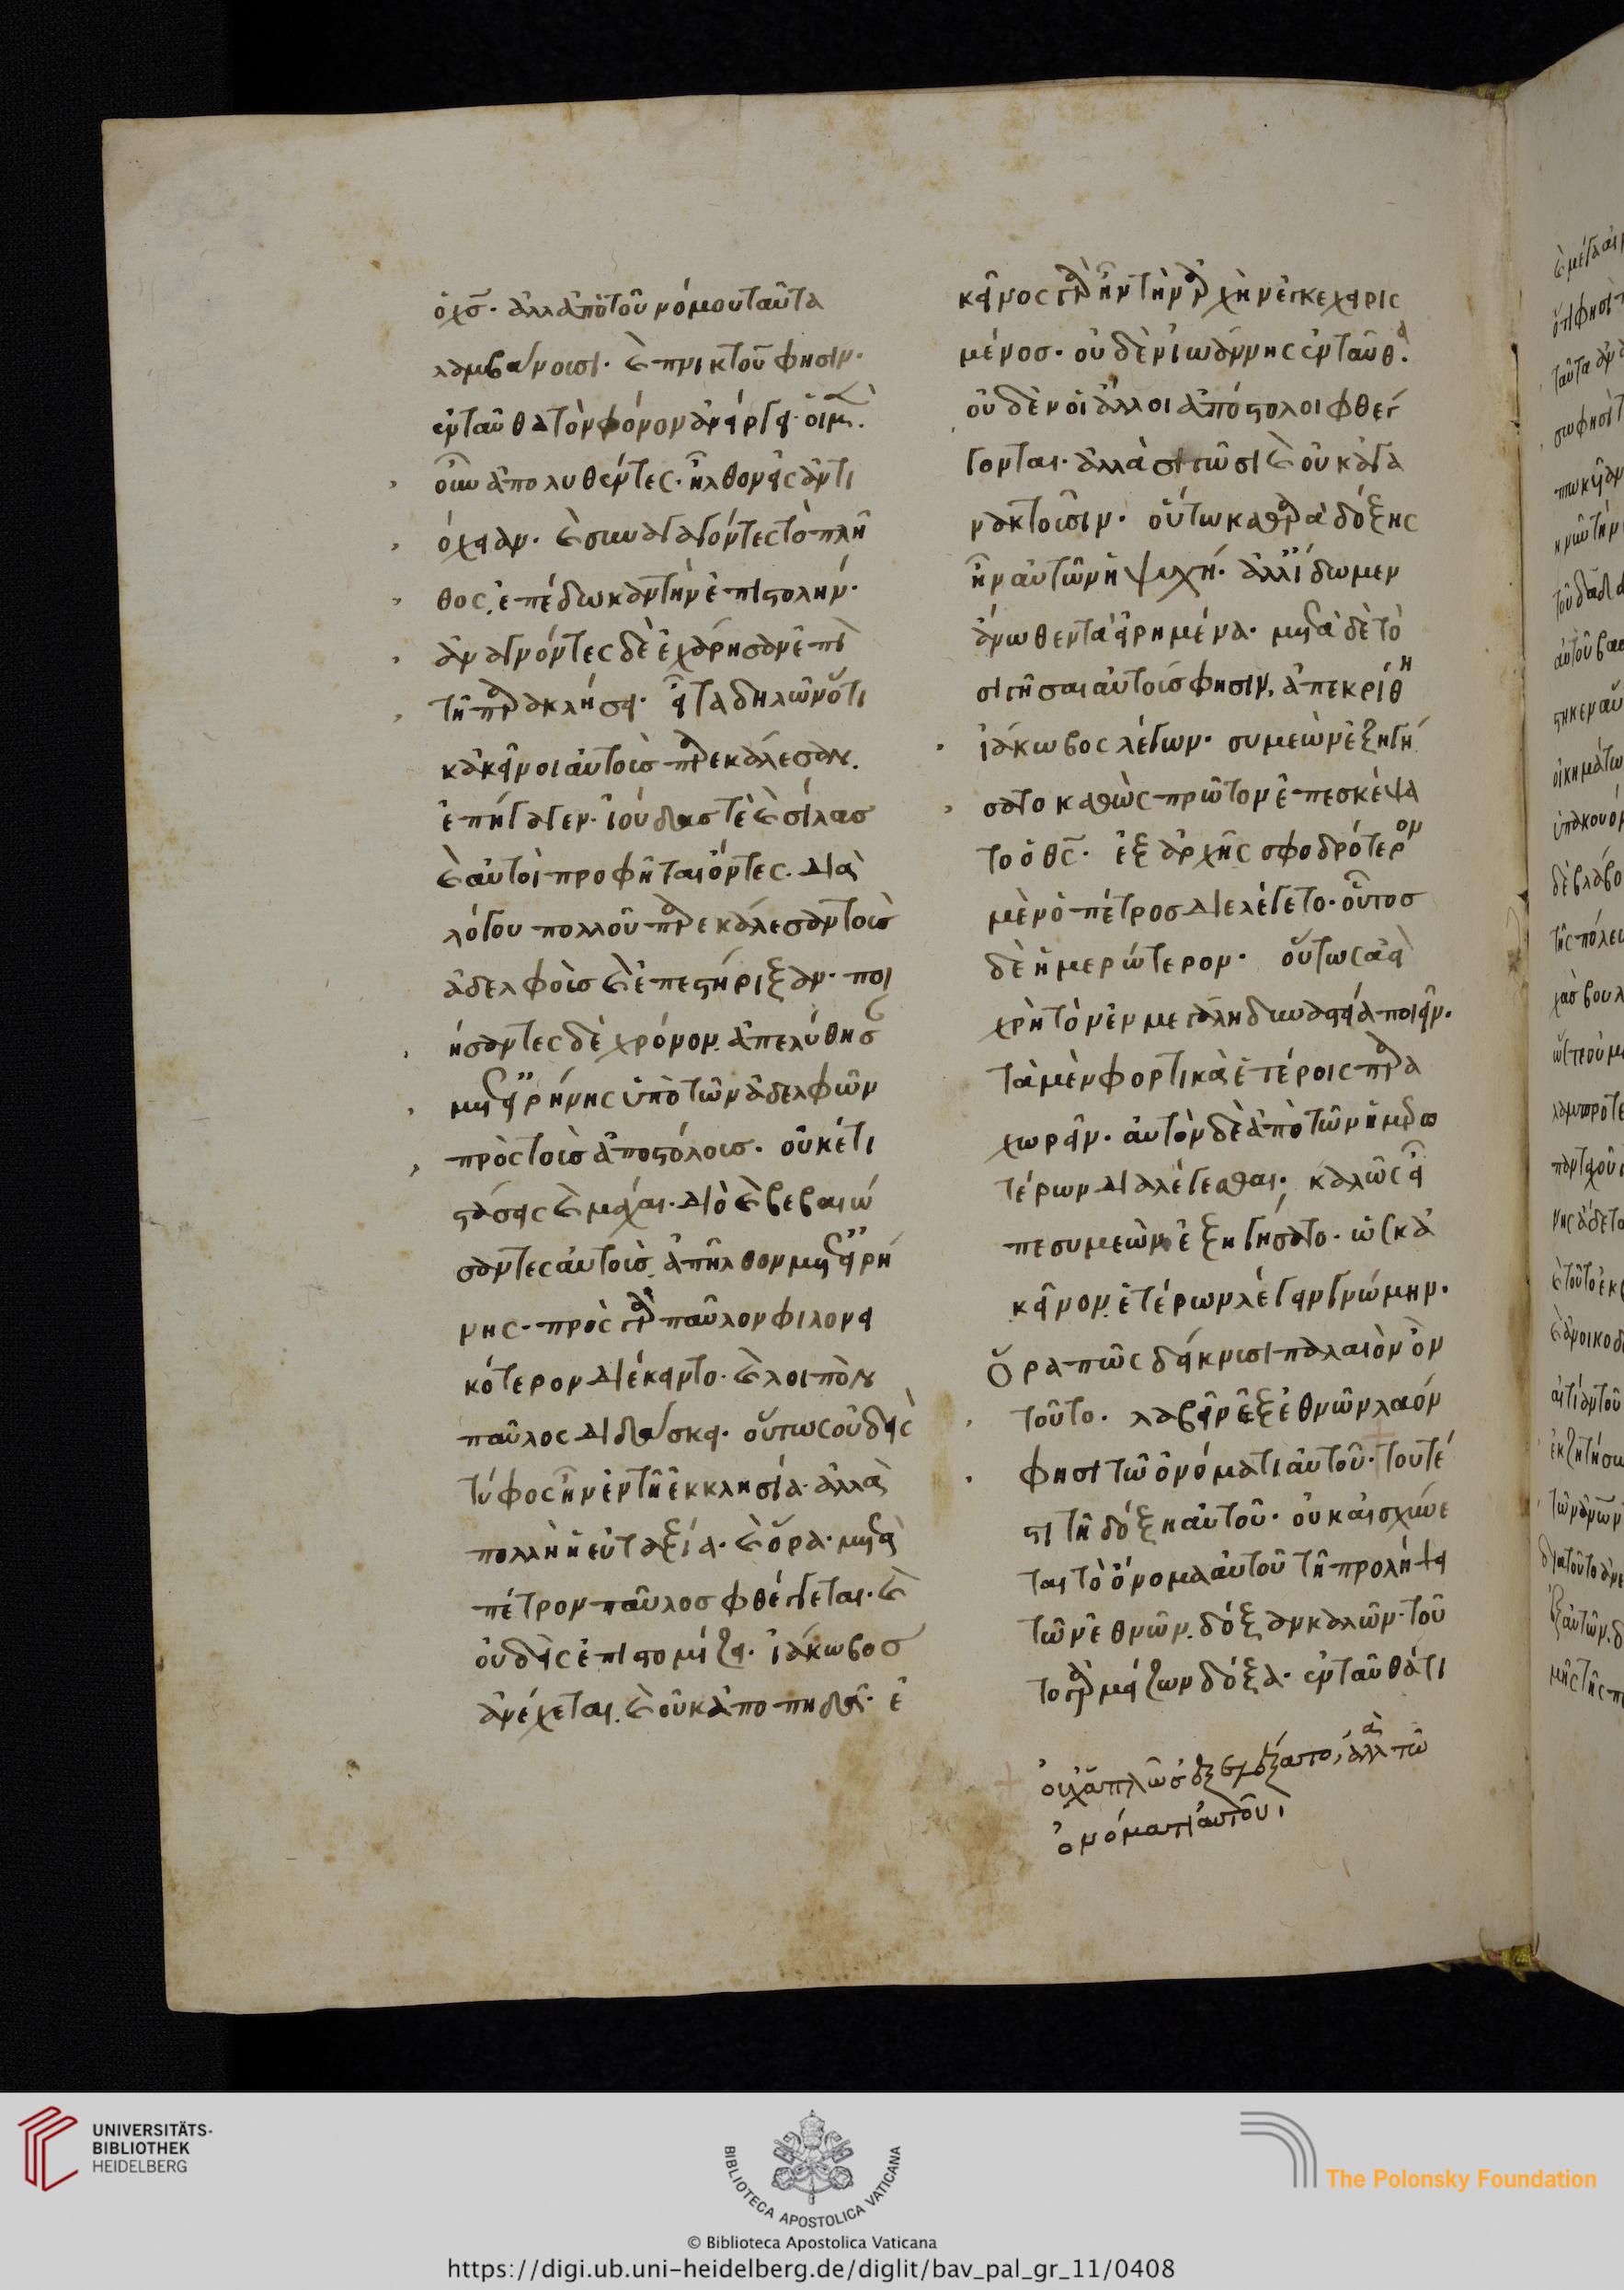 ὁ χσ̄. ἀλλ' ἀπὸ τοῦ νόμου ταῦτα
λαμβάνουσι. καὶ πνικτοῦ φησιν.
ἐνταῦθα τὸν φόνον ἀνείργει. οἱ μὲν
οὖν ἀπολυθέντες. ἦλθον εἰς ἀντι
όχειαν. καὶ συναγαγόντες τὸ πλῆ
θος, ἐπέδωκαν τὴν ἐπιστολήν.
ἀναγνόντες δὲ ἐχάρησαν ἐπὶ
τῇ παρακλήσει. εἶτα δηλῶν ὅτι
κἀκεῖνοι αὐτοὺς παρεκάλεσαν.
ἐπήγαγεν. ἰούδας τὲ καὶ σίλας
καὶ αὐτοὶ προφῆται ὄντες. διὰ
λόγου πολλοῦ παρεκάλεσαν τοὺς
ἀδελφοὺς καὶ ἐπεστήριξαν. ποι
ήσαντες δὲ χρόνον. ἀπελύθησαν
μετ' εἰρήνης ὑπὸ τῶν ἀδελφῶν
πρὸς τοὺς ἀποστόλους. οὐκέτι
στάσεις καὶ μάχαι. διὸ καὶ βεβαιώ
σαντες αὐτοὺς, ἀπῆλθον μετ' εἰρή
νης. πρὸς γὰρ παῦλον φιλονει
κότερον διέκειντο. καὶ λοιπὸν
παῦλος διδάσκει. οὕτως οὐδεὶς
τύφος ἦν ἐν τῇ ἐκκλησίᾳ. ἀλλὰ
πολλὴ ἡ εὐταξία. καὶ ὅρα. μετὰ
πέτρον παῦλος φθέγγεται. καὶ
οὐδεὶς ἐπιστομίζει. ἰάκωβος
ἀνέχεται. καὶ οὐκ ἀποπηδᾷ. ἐ
κεῖνος γὰρ ἦν τὴν ἀρχὴν ἐγκεχειρις
μένος. οὐδὲν ἰωάννης ἐνταῦθα.
οὐδὲν οἱ ἄλλοι ἀπόστολοι φθέγ
γονται. ἀλλὰ σιγῶσι καὶ οὐκ ἀγα
νακτοῦσιν. οὕτω καθαρὰ δόξης
ἦν αὐτῶν ἡ ψυχή. ἀλλ' ἴδωμεν
ἄνωθεν τὰ εἰρημένα. μετὰ δὲ τὸ
σιγῆσαι αὐτούς φησιν, ἀπεκρίθη
ἰάκωβος λέγων. συμεὼν ἐξηγή
σατο καθὼς πρῶτον ἐπεσκέψα
το ὁ θς̄. ἐξ ἀρχῆς σφοδρότερον
μὲν ὁ πέτρος διελέγετο. οὗτος
δὲ ἡμερώτερον. οὕτως ἀεὶ
χρὴ τὸν ἐν μεγάλῃ δυναστείᾳ ποιεῖν.
τὰ μὲν φορτικὰ ἑτέροις παρα
χωρεῖν. αὐτὸν δὲ ἀπὸ τῶν ἡμερω
τέρων διαλέγεσθαι. καλῶς εἶ
πε συμεὼν ἐξηγήσατο. ὡς κἀ
κεῖνον ἑτέρων λέγειν γνώμην.
Ὅρα πῶς δείκνυσι παλαιὸν ὂν
τοῦτο. λαβεῖν ἐξ ἐθνῶν λαόν
φησι τῷ ὀνόματι αὐτοῦ. τουτέ
στι τῇ δόξῃ αὐτοῦ. οὐκ αἰσχύνε
ται τὸ ὄνομα αὐτοῦ τῇ προλήψει
τῶν ἐθνῶν. δόξαν καλῶν. τοῦ
το γὰρ μείζων δόξα. ἐνταῦθά τι
οὐχ ἁπλῶς ἐξελέξατο, ἀλλὰ τῷ
ὀνόματι αὐτοῦ
UNIVERSITÄTS-
BIBLIOTHEK
HEIDELBERG
BIBLIOTECA APOSTOLICA VATICANA
The Polonsky Foundation
© Biblioteca Apostolica Vaticana
https://digi.ub.uni-heidelberg.de/diglit/bav_pal_gr_11/0408